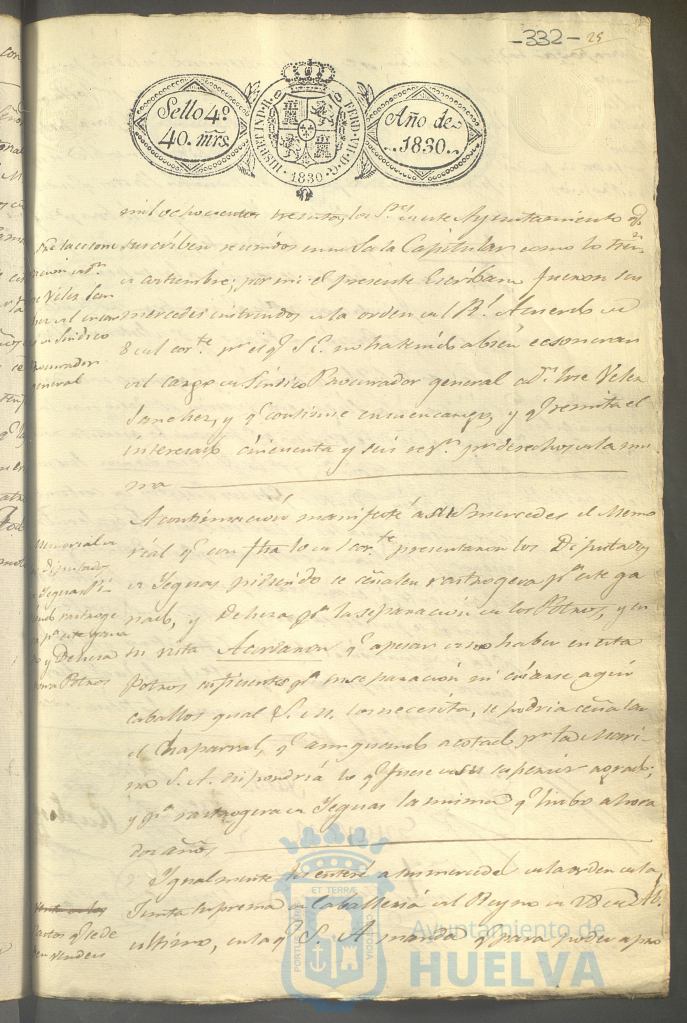 -332- 25
Sello 4º
40. mrs.
HISP. ET IND. R. FERD. VII. D. G. 1830
Año de
1830.
mil ochocientos treinta, los S.res de este Ayuntamiento q.e
suscriben reunidos en su Sala Capitular como lo tien.n
de costumbre; por mi el presente Escribano fueron sus
mercedes instruidos de la orden del R.l Acuerdo de
8 del cor.te p.r el q.e S.E. no ha tenido a bien exsonerar
del cargo de Sindico Procurador general a D.n Jose Velez
Sanchez, y q.e continue en su encargo, y q.e remita el
interesado cincuenta y seis r.s v.n p.r derechos de la mis-
ma
A continuacion manifesté a sus mercedes el Memo
rial q.e con fha lo del cor.te presentaron los Diputados
de Yeguas pidiendo se señalen rastrogera p.a este ga
nado, y Dehesa p.a la separacion de los Potros, y en
su vista Acordaron q.e apesar de no haber en esta
Potros suficientes p.a su separacion ni criarse aqui
caballos qual S.M. los necesita, se podria señalar
el Chaparral, q.e aunquando acotado p.r la Mari
na S.A. dispondría lo q.e fuese de su superior agrado;
y p.a rastrogera de Yeguas la misma q.e hubo ahora
dos años
Igualmente les enteré a sus mercedes de la orden de la
Junta Suprema de Caballeria del Reyno de 28 de
ultimo, en la q.e S.A. manda q.e para poder apro
de Velez San
Sindico
Procurador
general
Memorial de
Diputados
de Yeguas
rastroge
p.a este gana
do y Dehesa
para Potros
ET TERRÆ
PORTUS
CUSTODIA
Ayuntamiento de
HUELVA